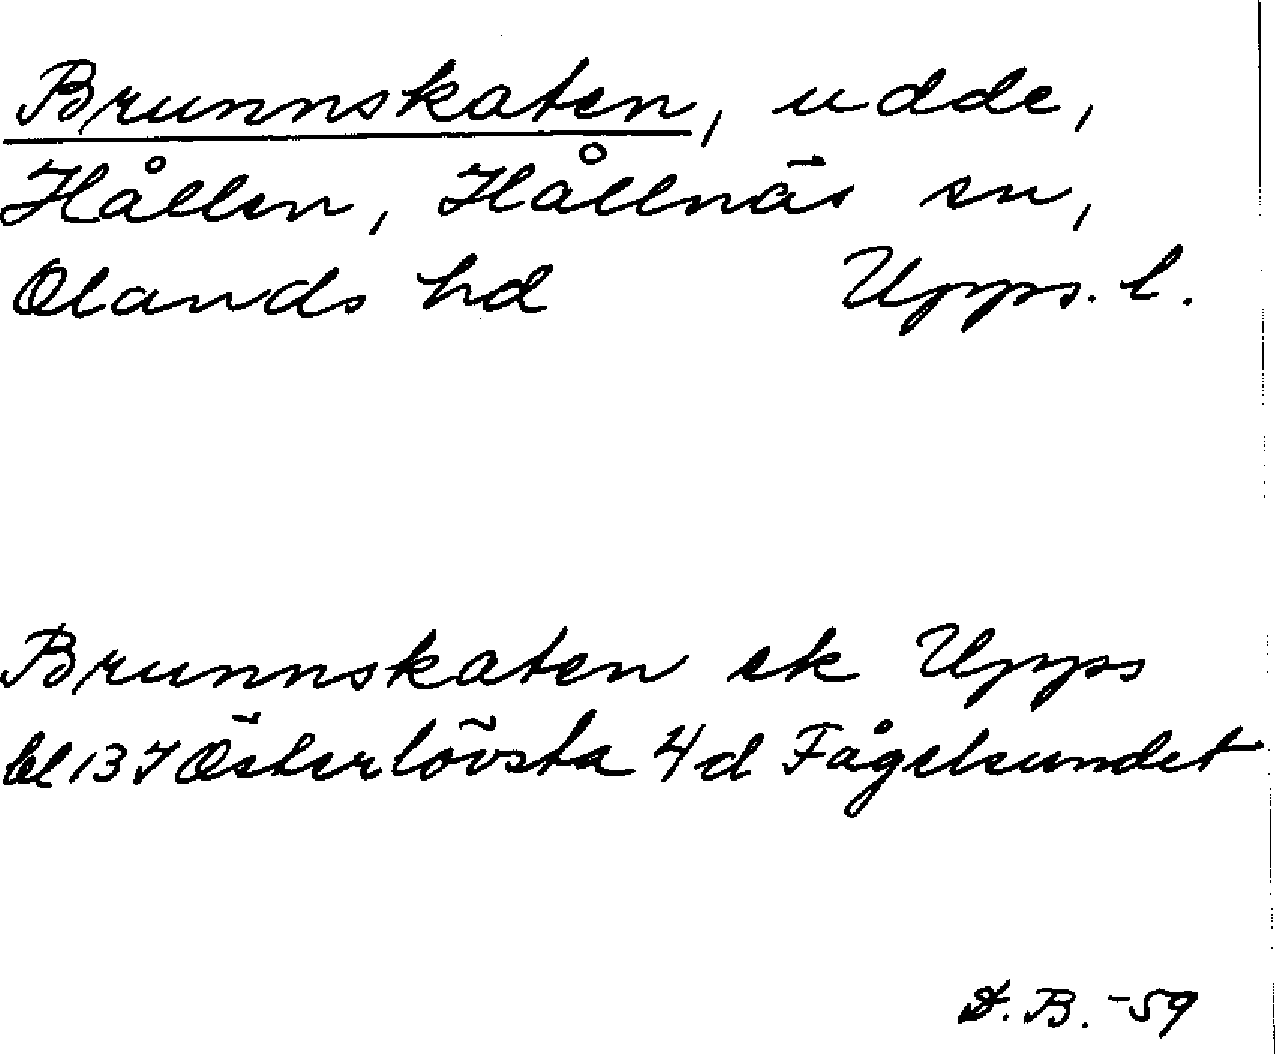 Brunnskaten, udde,
Hållen, Hållnäs sn,
Olands hd Upps. l.
Brunnskaten ek Upps
bl 137 Österlövsta 4d Fågelsundet
D. B. -59